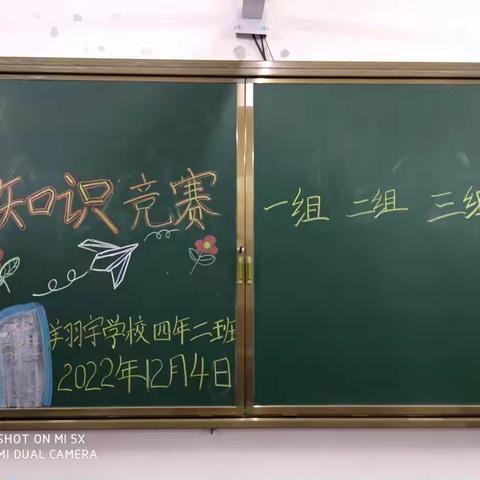 知识竞赛
羽宇学校四年二班
2022年12月4日
一组 二组 三组
SHOT ON MI 5X
MI DUAL CAMERA